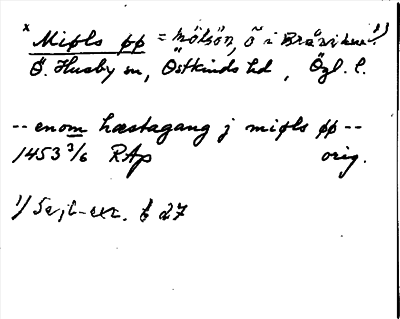 x Miøls øø = Mölsön, ö i Bråviken 1)
Ö. Husby sn, Östkinds hd, Ögl. l.
-- enom hæstagang j miøls øø --
1453 3/6 RAp orig.
1) 27